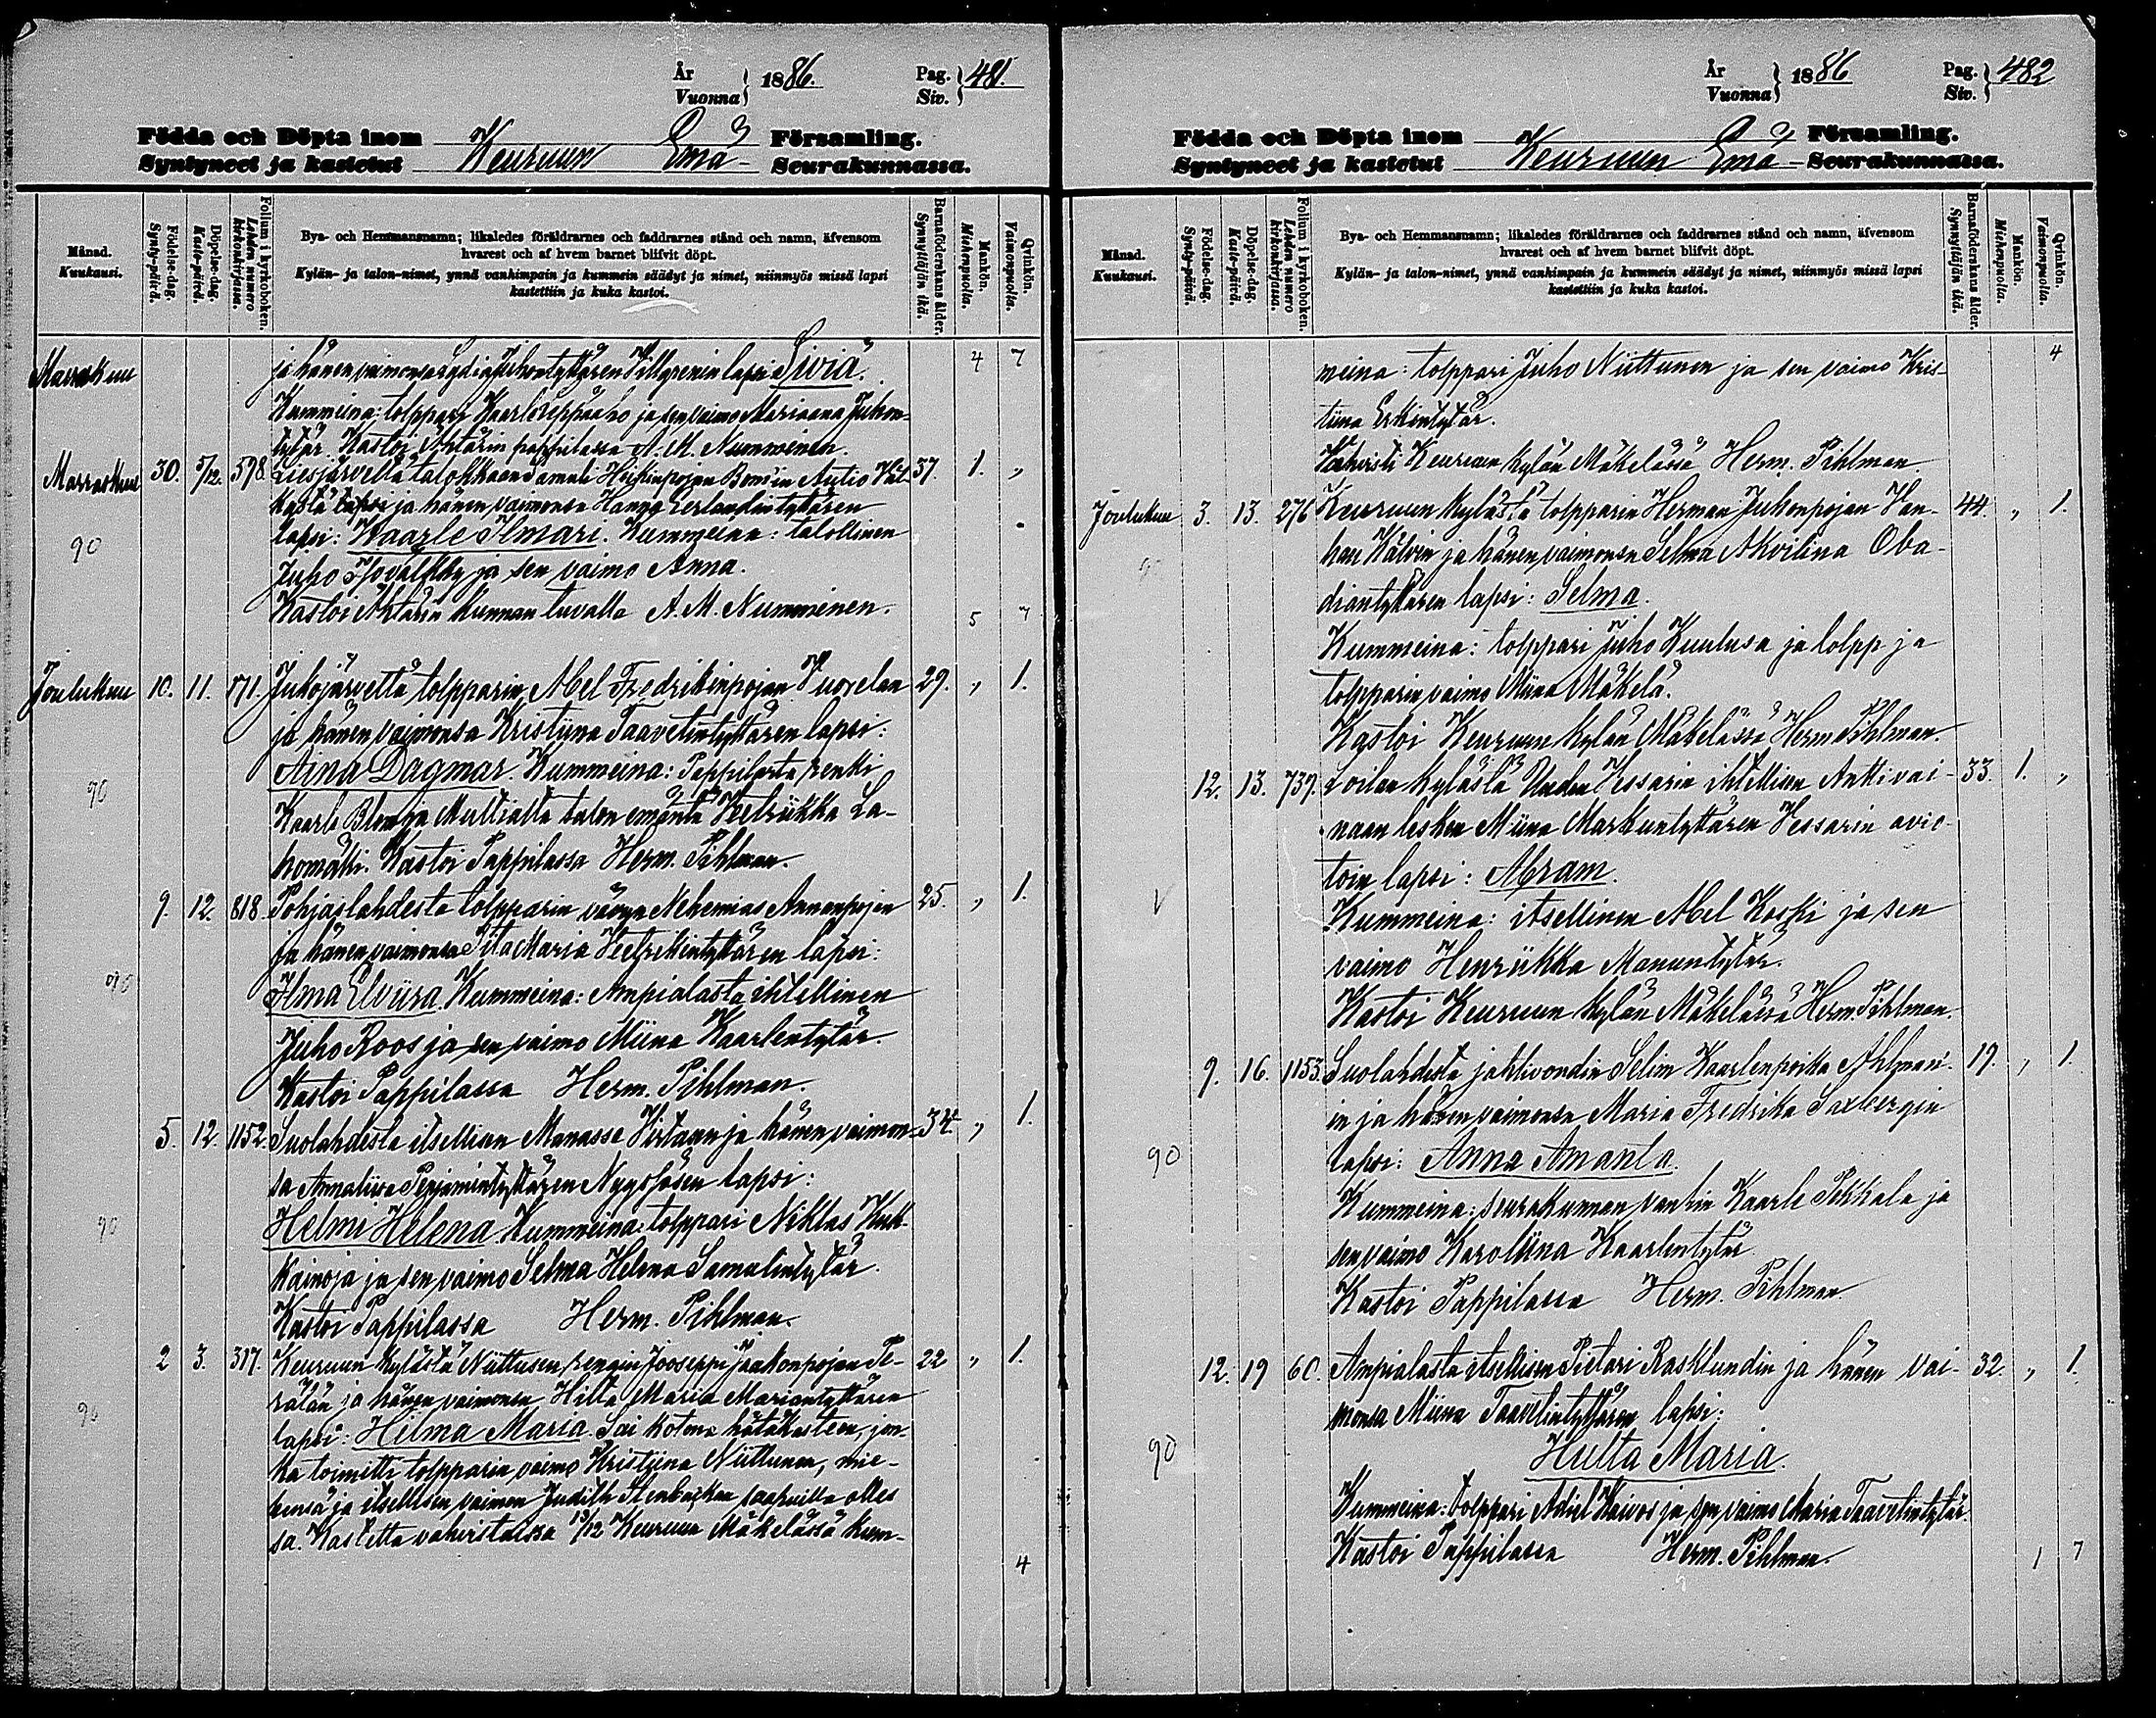 År
Vuonna } 1886.
Pag.
Siv. } 481.
Födda och Döpta inom
Syntyneet ja kastetut
Keuruun Emä-
Församling.
Seurakunnassa.
Månad.
Kuukausi.
Födelse-dag.
Synty-päivä.
Döpelse-dag.
Kaste-päivä.
Folium i kyrkoboken.
Lehden numero
kirkonkirjassa.
Bya- och Hemmansnamn; likaledes föräldrarnes och faddrarnes stånd och namn, äfvensom
hvarest och af hvem barnet blifvit döpt.
Kylän- ja talon-nimet, ynnä vanhimpain ja kummein säädyt ja nimet, niinmyös missä lapsi
kastettiin ja kuka kastoi.
Barnaföderskans ålder.
Synnyttäjän ikä.
Mankön.
Miehenpuolia.
Qvinkön.
Vaimonpuolia.
Marraskuu ja hänen vaimonsa Lydia Juhontyttären lapsi Livia. 4 7
Kummeina: tolppari Kaarlo ja sen vaimo Mariaana Juhon-
tytär. Kastoi Ähtärin pappilassa A. M. Numminen.
Marraskuu 30. 5/12. 598. talokkaan Samuli Heikinpojan 37. 1. "
ja hänen vaimonsa Hanna Erlandintyttären
lapsi: Kaarle Ilmari. Kummeina: talollinen
90
Juho ja sen vaimo Anna.
Kastoi Ähtärin kunnan tuvalla A. M. Numminen.
5 7
Joulukuu 10. 11. 171. Jukojärveltä tolpparin Abel Fredrikinpojan Vuorelan 29. " 1.
ja hänen vaimonsa Kristiina Taavetintyttären lapsi:
Aina Dagmar. Kummeina: Pappilasta renki
90
Kaarle Blom ja Multialta talon emäntä Vetriikka La-
homäki. Kastoi Pappilassa Herm. Pihlman.
9. 12. 818. Pohjaslahdesta tolpparin vävyn Nehemias Annanpojan 25. " 1.
ja hänen vaimonsa Maria Vetrikintyttären lapsi:
90
Ilma Elviira. Kummeina: Ampialasta ihtellinen
Juho Roos ja sen vaimo Miina Kaarlentytär.
Kastoi Pappilassa Herm. Pihlman.
5. 12. 1152. Suolahdesta itsellisen Manasse Virtasen ja hänen vaimon- 34. " 1.
sa Annaliisa Penjamintyttären lapsi:
90
Helmi Helena. Kummeina: tolppari Niklas Kuk-
kainoja ja sen vaimo Selma Helena Samulintytär.
Kastoi Pappilassa Herm. Pihlman.
2 3. 317. Keuruun kylästä Niittusen rengin Jooseppi Jaakonpojan Pe- 22 " 1.
rälän ja hänen vaimonsa Hilta Maria Mariantyttären
90
lapsi: Hilma Maria. Sai kotona hätäkasteen, jon-
ka toimitti tolpparin vaimo Kristiina Niittunen, mie-
hensä ja itsellisen vaimon Judith Stenbackan saapuilla olles-
sa. Kastetta vahvistaissa 13/12 Keuruun Mäkelässä kum-
4
År
Vuonna } 1886
Pag.
Siv. } 482
Födda och Döpta inom
Syntyneet ja kastetut
Keuruun Emä-
Församling.
Seurakunnassa.
Månad.
Kuukausi.
Födelse-dag.
Synty-päivä.
Döpelse-dag.
Kaste-päivä.
Folium i kyrkoboken.
Lehden numero
kirkonkirjassa.
Bya- och Hemmansnamn; likaledes föräldrarnes och faddrarnes stånd och namn, äfvensom
hvarest och af hvem barnet blifvit döpt.
Kylän- ja talon-nimet, ynnä vanhimpain ja kummein säädyt ja nimet, niinmyös missä lapsi
kastettiin ja kuka kastoi.
Barnaföderskans ålder.
Synnyttäjän ikä.
Mankön.
Miehenpuolia.
Qvinkön.
Vaimonpuolia.
4
meina: tolppari Juho Niittunen ja sen vaimo Kris-
tiina Erkintytär.
Vahvisti Keuruun kylän Mäkelässä Herm. Pihlman.
Joulukuu 3. 13. 276 Keuruun kylästä tolpparin Herman Juhonpojan Van- 44. " 1.
han ja hänen vaimonsa Selma Akvilina Oba-
diantyttären lapsi: Selma.
Kummeina: tolppari Juho Kuulusa ja tolpp ja
tolpparin vaimo Miina Mäkelä.
Kastoi Keuruun kylän Mäkelässä Herm. Pihlman.
12. 13. 737. Loilan kylästä Uuden Vessarin ihtellisen Antti vai- 33. 1. "
naan lesken Miina Markuntyttären Vessarin avio-
toin lapsi: Abram.
Kummeina: itsellinen Abel Koski ja sen
vaimo Henriikka Manuntytär.
Kastoi Keuruun kylän Mäkelässä Herm. Pihlman.
9. 16. 1153. Suolahdesta jahtivoudin Selim Kaarlenpoika Ahlman- 19. " 1.
in ja hänen vaimonsa Maria Fredrika Saxbergin
90
lapsi: Anna Amanta.
Kummeina: seurakunnan vanhin Kaarle Pekkala ja
sen vaimo Karoliina Kaarlentytär
Kastoi Pappilassa Herm. Pihlman
12. 19 60. Ampialasta itsellisen Pietari Rasklundin ja hänen vai- 32. " 1.
monsa Miina Taavetintyttären lapsi:
90
Hulta Maria.
Kummeina: tolppari Adiel Kaivos ja sen vaimo Maria Taavetintytär.
Kastoi Pappilassa Herm. Pihlman.
1 7